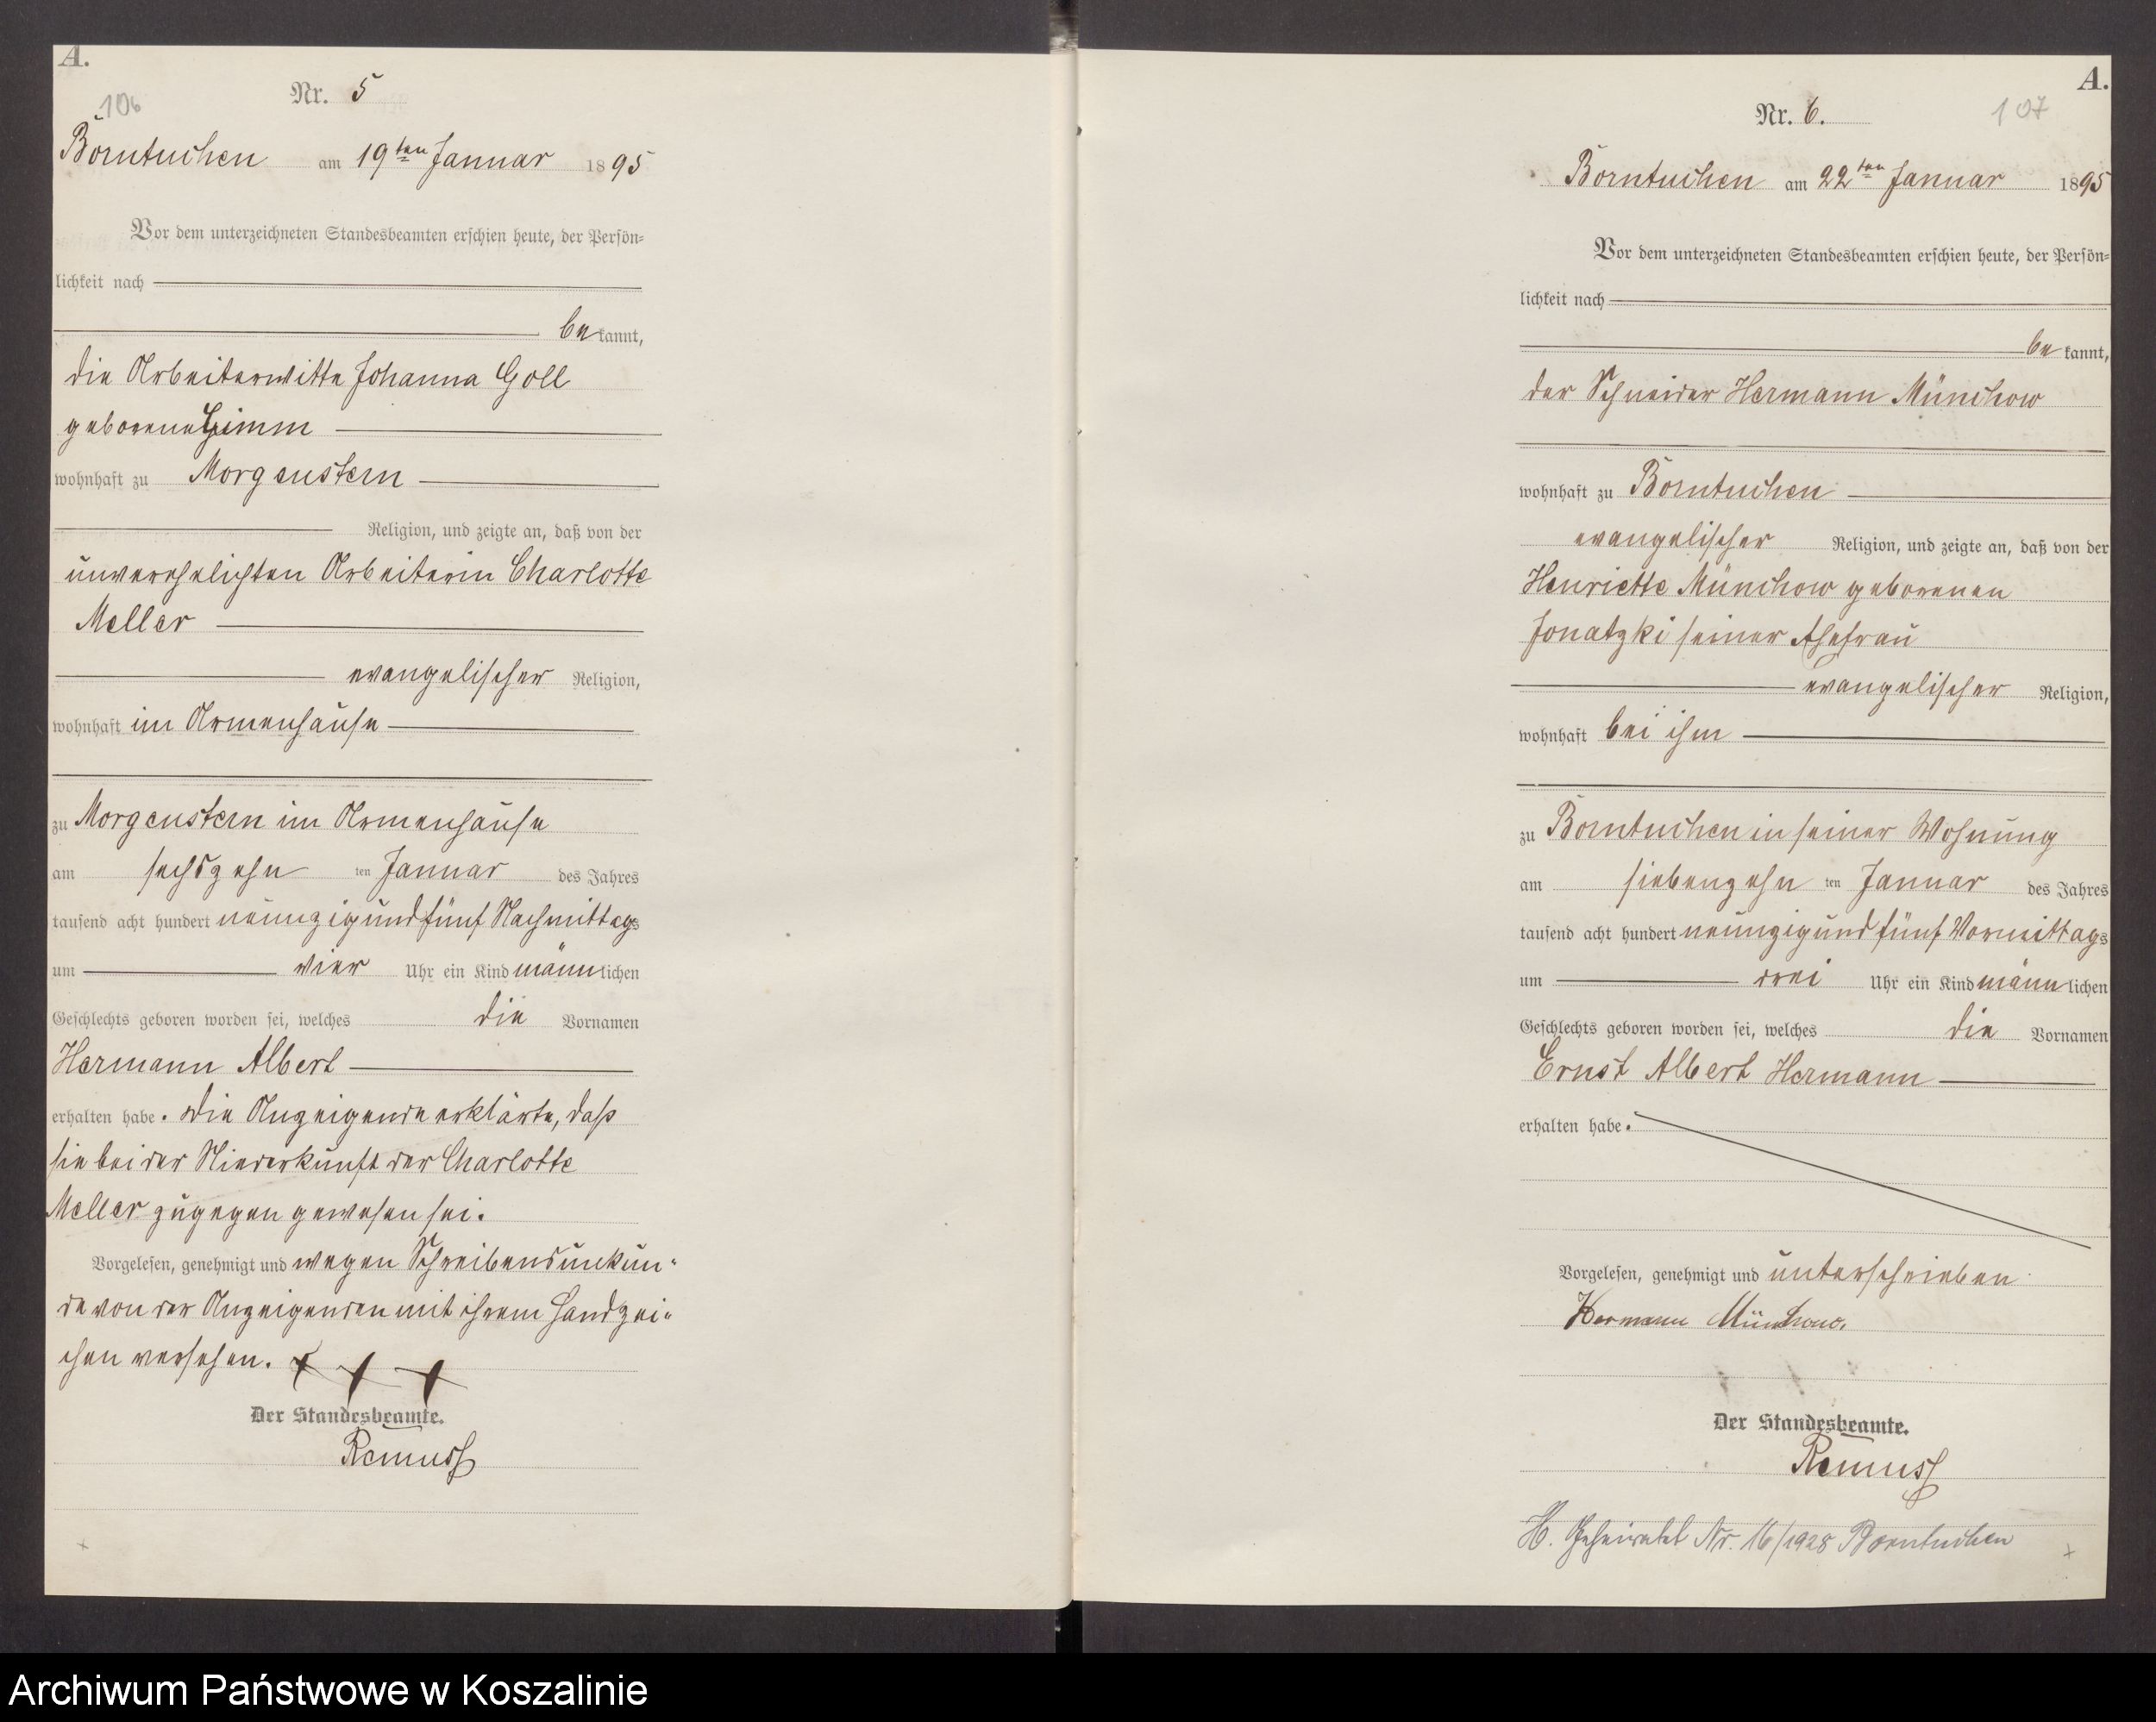 A.
106
Nr. 5
Borntuchen am 19ten Januar 1895
Vor dem unterzeichneten Standesbeamten erschien heute, der Persön=
lichkeit nach
bekannt,
die Arbeiterwittwe Johanna Goll
geborene Grimm
wohnhaft zu Morgenstern
Religion, und zeigte an, daß von der
unverehelichten Arbeiterin Charlotte
Meller
evangelischer Religion,
wohnhaft im Armenhause
zu Morgenstern im Armenhause
am sechszehn ten Januar des Jahres
tausend acht hundert neunzigundfünf Nachmittags
um vier Uhr ein Kind männlichen
Geschlechts geboren worden sei, welches die Vornamen
Hermann Albert
erhalten habe. Die Anzeigende erklärte, daß
sie bei der Niederkunft der Charlotte
Meller zugegen gewesen sei.
Vorgelesen, genehmigt und wegen Schreibensunkun=
de von der Anzeigenden mit ihrem Handzei=
chen versehen. + + +
Der Standesbeamte.
Remuss
A.
107
Nr. 6.
Borntuchen am 22ten Januar 1895
Vor dem unterzeichneten Standesbeamten erschien heute, der Persön=
lichkeit nach
bekannt,
der Schneider Hermann Münchow
wohnhaft zu Borntuchen
evangelischer Religion, und zeigte an, daß von der
Henriette Münchow geborenen
Jonatzki seiner Ehefrau
evangelischer Religion,
wohnhaft bei ihm
zu Borntuchen in seiner Wohnung
am siebenzehn ten Januar des Jahres
tausend acht hundert neunzigundfünf Vormittags
um drei Uhr ein Kind männlichen
Geschlechts geboren worden sei, welches die Vornamen
Ernst Albert Hermann
erhalten habe.
Vorgelesen, genehmigt und unterschrieben
Hermann Münchow.
Der Standesbeamte.
Remuss
H. Geheiratet Nr. 16/1928 Borntuchen
Archiwum Państwowe w Koszalinie